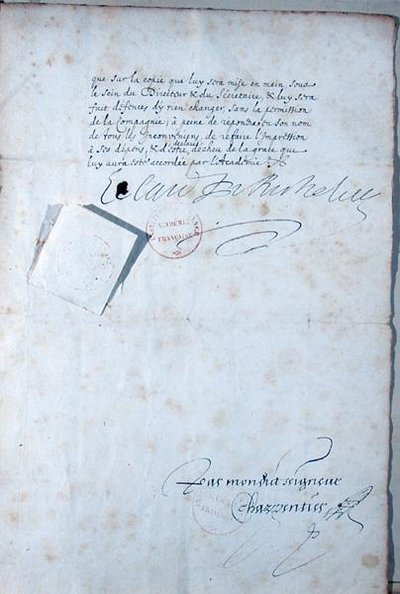 que sur la copie que luy sera mise en main sous
le sein du Directeur & du Secretaire, & luy sera
fait défences d'y rien changer, sans la permission
de la Compagnie; à peine de répondre en son nom
de tous les Inconvéniens, de refaire l'Impression
à ses dépens, & d'estre déclaré
décheu de la grace que
luy aura esté accordée par l'Académie
Le Card. de Richelieu
ACADÉMIE
FRANÇAISE
Par mondit seigneur
Charpentier